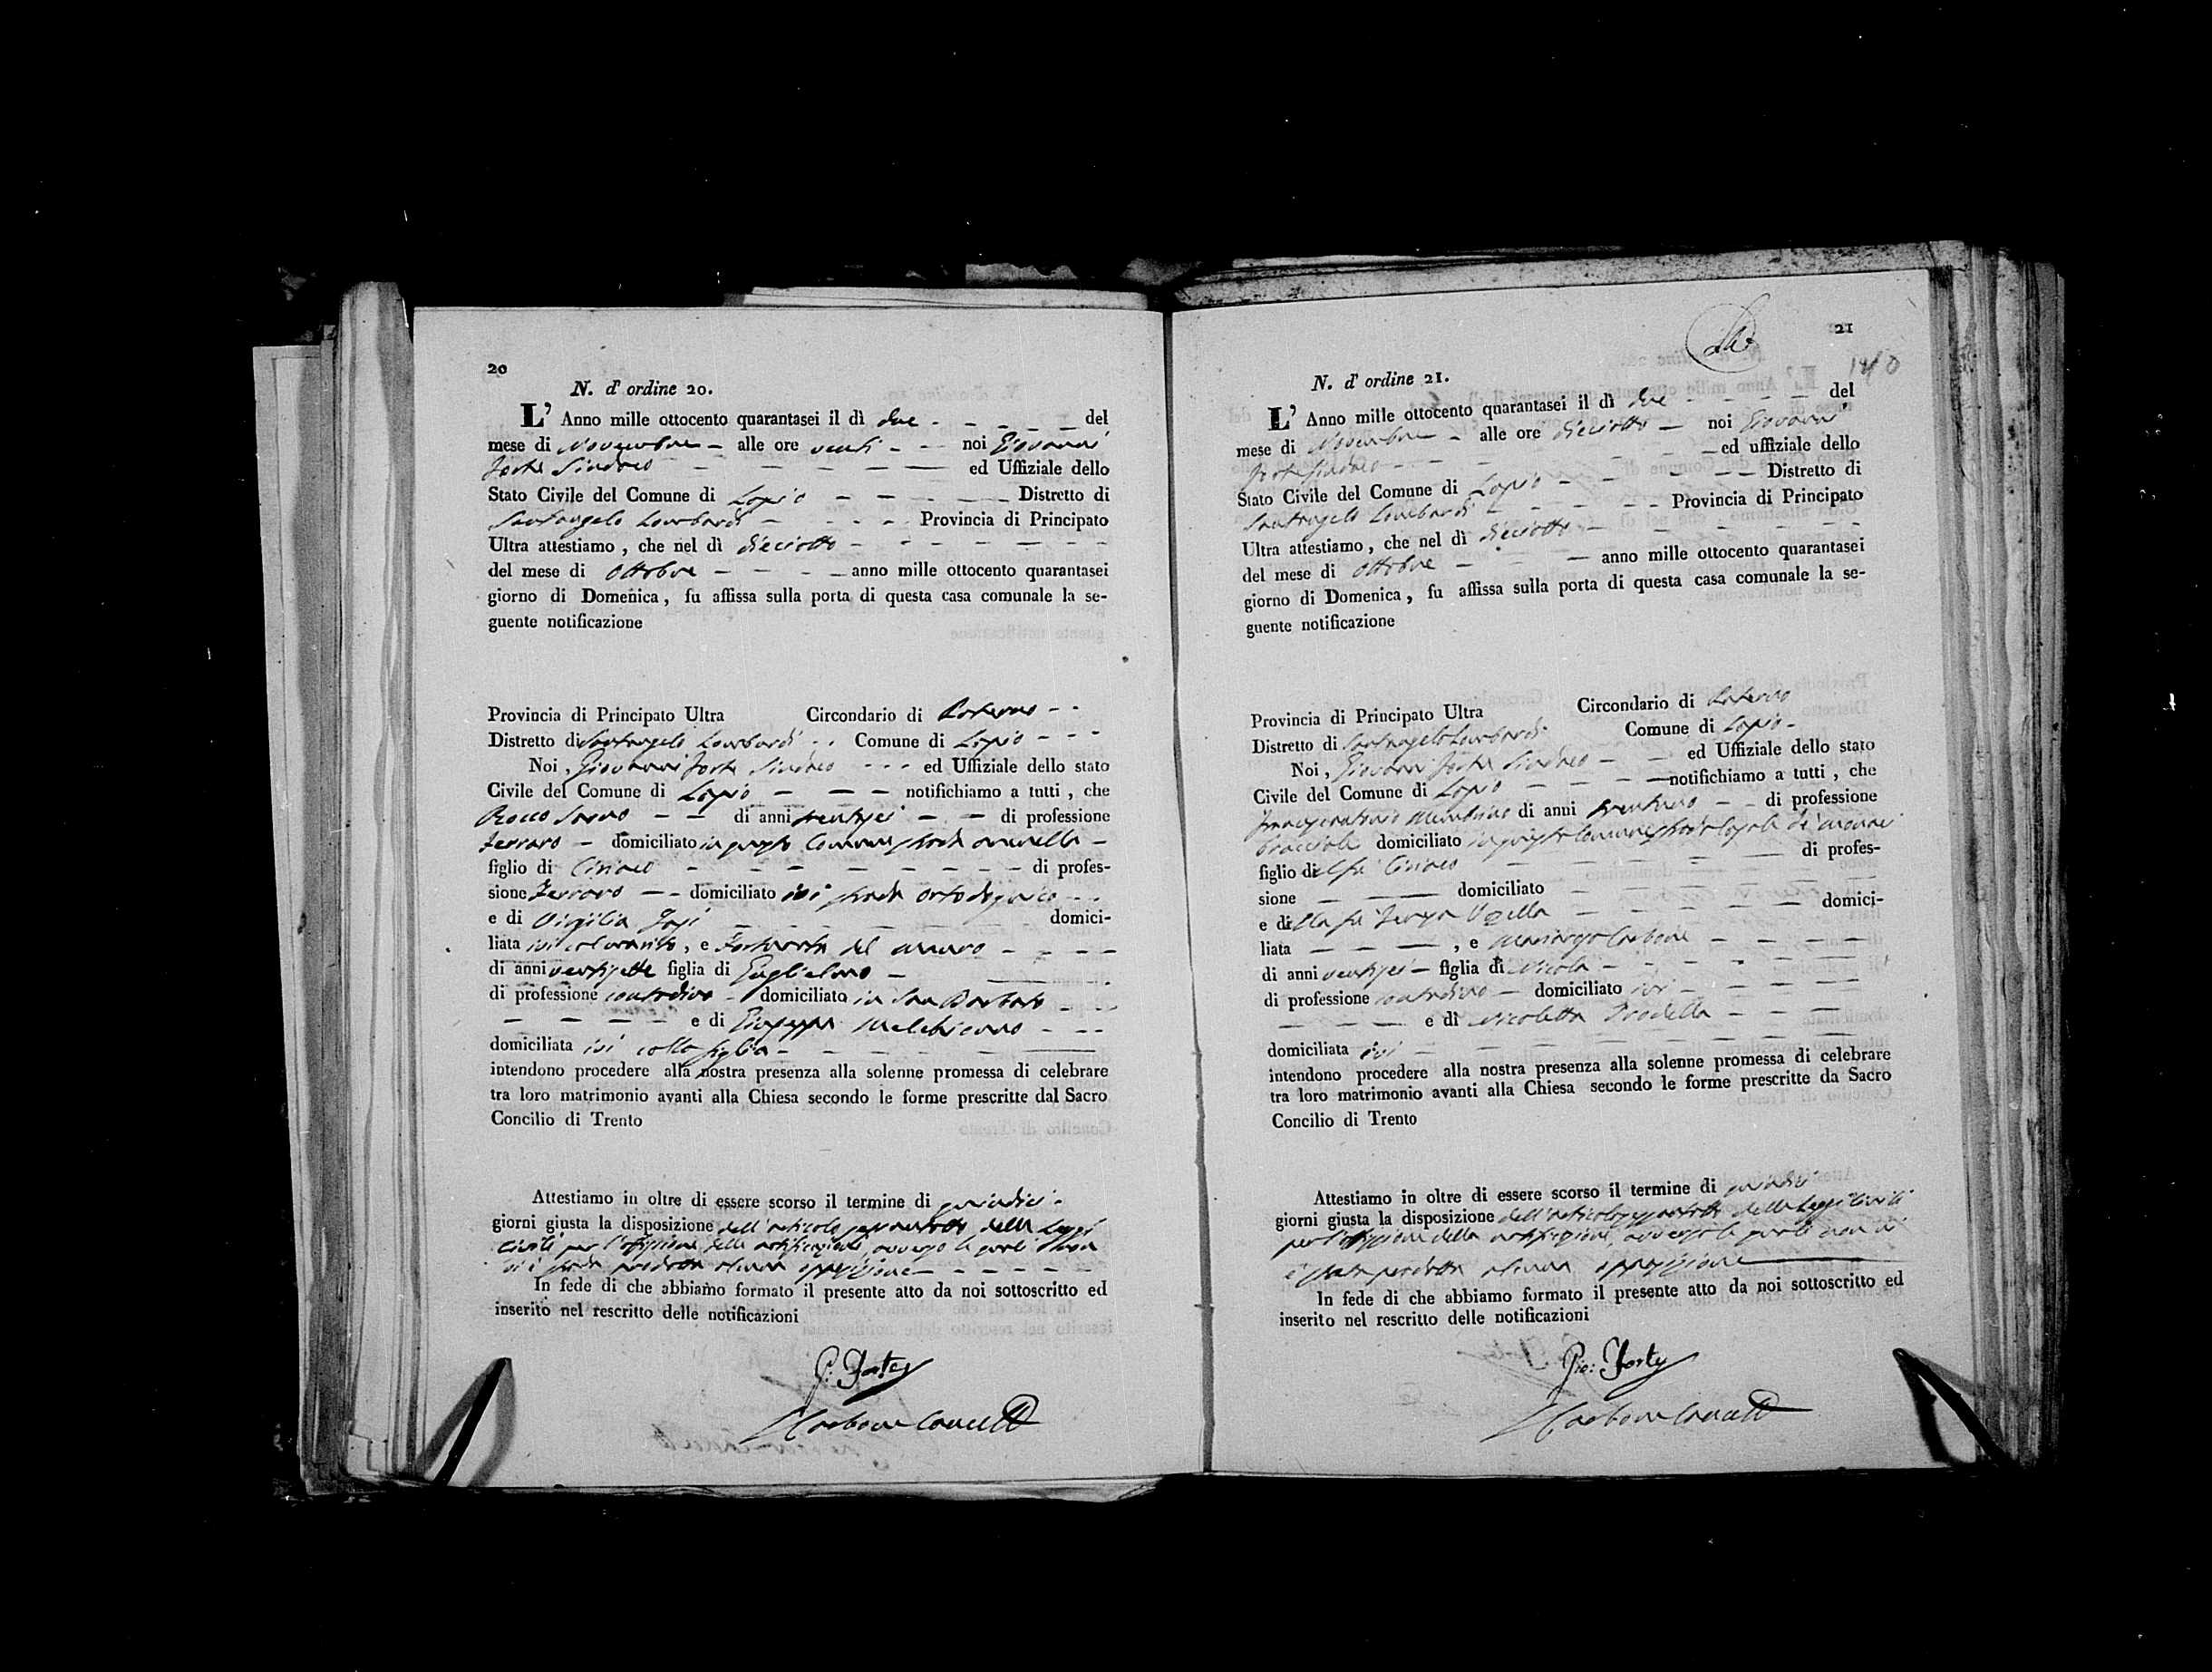 20
N. d' ordine 20.
L' Anno mille ottocento quarantasei il dì due del
mese di Novembre alle ore venti noi Giovanni
Forte Sindaco ed Uffiziale dello
Stato Civile del Comune di Lapio Distretto di
Santangelo Lombardi Provincia di Principato
Ultra attestiamo , che nel dì dieciotto
del mese di Ottobre anno mille ottocento quarantasei
giorno di Domenica, fu affissa sulla porta di questa casa comunale la se-
guente notificazione
Provincia di Principato Ultra Circondario di Paterno
Distretto di Santangelo Lombardi Comune di Lapio
Noi , Giovanni Forte Sindaco ed Uffiziale dello stato
Civile del Comune di Lapio notifichiamo a tutti , che
Rocco di anni trentasei di professione
Ferraro domiciliato in questo Comune strada
figlio di Ciriaco di profes-
sione Ferraro domiciliato ivi strada
e di Virgilia domici-
liata ivi col marito , e Fortunata del Mauro
di anni ventisette figlia di Guglielmo
di professione contadino domiciliato in San Barbato
e di Giuseppa Melchionno
domiciliata ivi colla figlia
intendono procedere alla nostra presenza alla solenne promessa di celebrare
tra loro matrimonio avanti alla Chiesa secondo le forme prescritte dal Sacro
Concilio di Trento
Attestiamo in oltre di essere scorso il termine di quindici
giorni giusta la disposizione dell'articolo sessantotto delle Leggi
Civili per l'affissione delle notificazioni, avverso le quali non
vi è stata prodotta alcuna opposizione
In fede di che abbiamo formato il presente atto da noi sottoscritto ed
inserito nel rescritto delle notificazioni
G: Forte
Carbone Cancell
21
140
N. d' ordine 21.
L' Anno mille ottocento quarantasei il dì due del
mese di Novembre alle ore dieciotto noi Giovanni
Forte Sindaco ed uffiziale dello
Stato Civile del Comune di Lapio Distretto di
Santangelo Lombardi Provincia di Principato
Ultra attestiamo , che nel dì dieciotto
del mese di Ottobre anno mille ottocento quarantasei
giorno di Domenica , fu affissa sulla porta di questa casa comunale la se-
guente notificazione
Provincia di Principato Ultra Circondario di Paterno
Distretto di Santangelo Lombardi Comune di Lapio
Noi , Giovanni Forte Sindaco ed Uffiziale dello stato
Civile del Comune di Lapio notifichiamo a tutti , che
Francescantonio di anni trentuno di professione
bracciale domiciliato in questo Comune strada
figlio del fu Ciriaco di profes-
sione domiciliato
e della fu domici-
liata , e Carbone
di anni ventisei figlia di Nicola
di professione contadino domiciliato ivi
e di Nicoletta
domiciliata ivi
intendono procedere alla nostra presenza alla solenne promessa di celebrare
tra loro matrimonio avanti alla Chiesa secondo le forme prescritte da Sacro
Concilio di Trento
Attestiamo in oltre di essere scorso il termine di quindici
giorni giusta la disposizione dell'articolo sessantotto delle Leggi Civili
per l'affissione della notificazione, avverso le quali non vi
è stata prodotta alcuna opposizione
In fede di che abbiamo formato il presente atto da noi sottoscritto ed
inserito nel rescritto delle notificazioni
Gio: Forte
Carbone Cancell